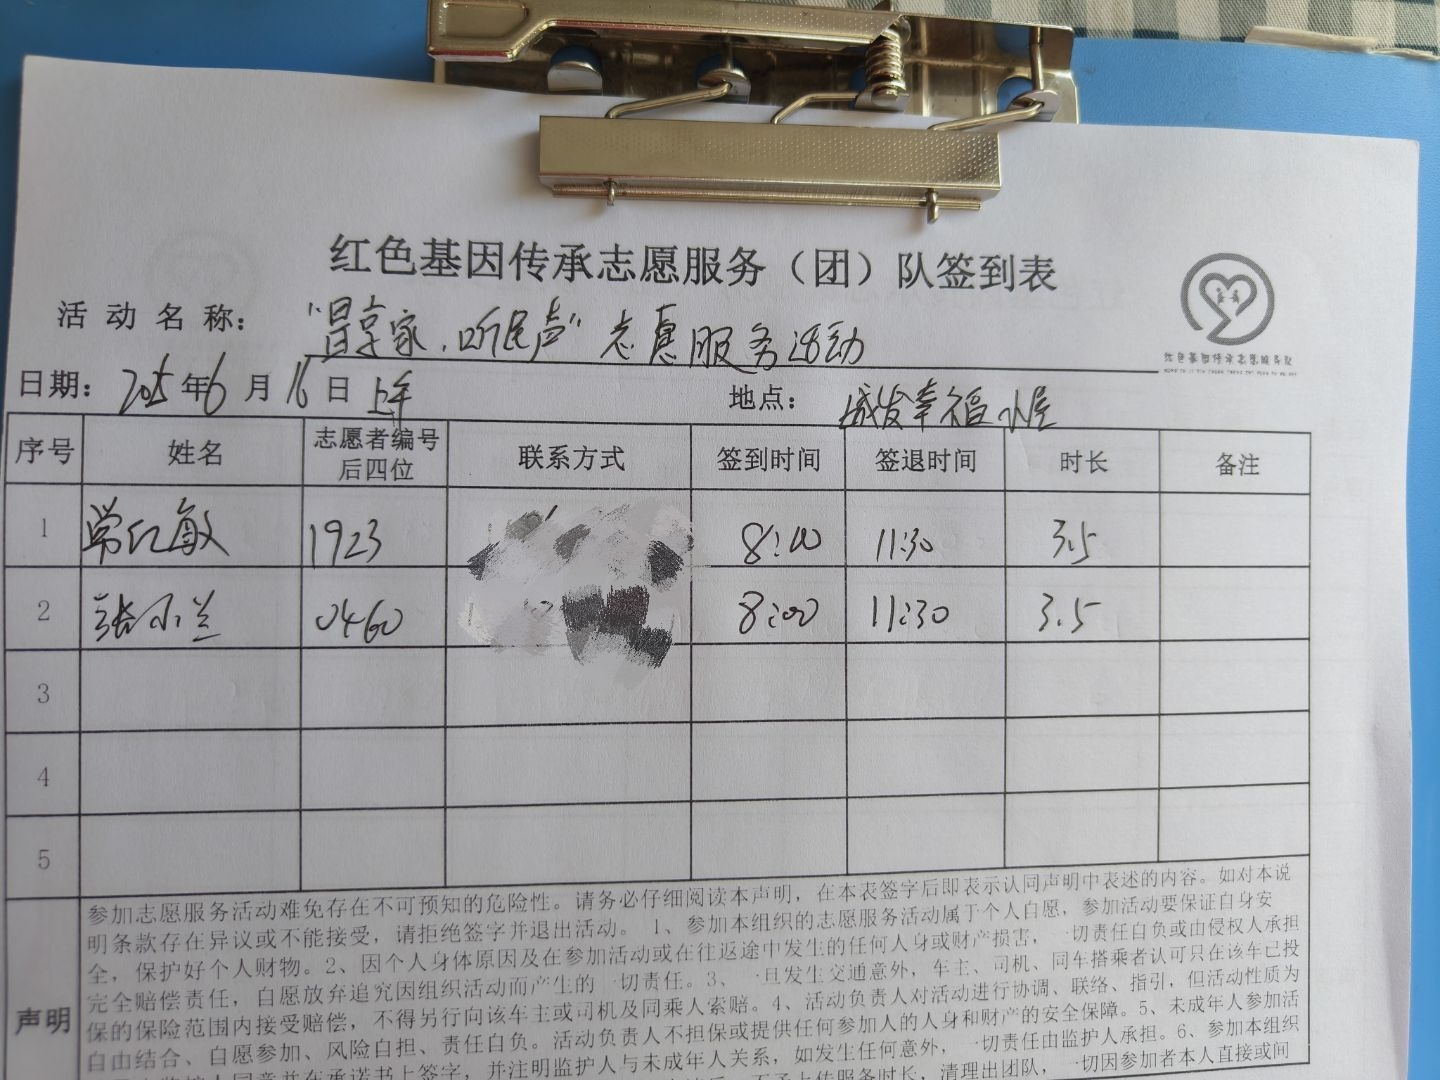 红色基因传承志愿服务（团）队签到表
活动名称： 享家，听民声”志愿服务活动
红色基因传承志愿服务队
日期： 2025年6月16日上午 地点： 城发幸福小屋
序号 姓名 志愿者编号后四位 联系方式 签到时间 签退时间 时长 备注
1 常红敏 1923 8:00 11:30 3.5
2 张小兰 0460 8:00 11:30 3.5
3
4
5
声明
参加志愿服务活动难免存在不可预知的危险性。请务必仔细阅读本声明，在本表签字后即表示认同声明中表述的内容。如对本说
明条款存在异议或不能接受，请拒绝签字并退出活动。 1、参加本组织的志愿服务活动属于个人自愿，参加活动要保证自身安
全，保护好个人财物。2、因个人身体原因及在参加活动或在往返途中发生的任何人身或财产损害，一切责任自负或由侵权人承担
完全赔偿责任，自愿放弃追究因组织活动而产生的一切责任。3、一旦发生交通意外，车主、司机、同车搭乘者认可只在该车已投
保的保险范围内接受赔偿，不得另行向该车主或司机及同乘人索赔。4、活动负责人对活动进行协调、联络、指引，但活动性质为
自由结合、自愿参加、风险自担、责任自负。活动负责人不担保或提供任何参加人的人身和财产的安全保障。5、未成年人参加活
监护人同意并在承诺书上签字，并注明监护人与未成年人关系，如发生任何意外，一切责任由监护人承担。6、参加本组织
不予上传服务时长，清理出团队，一切因参加者本人直接或间